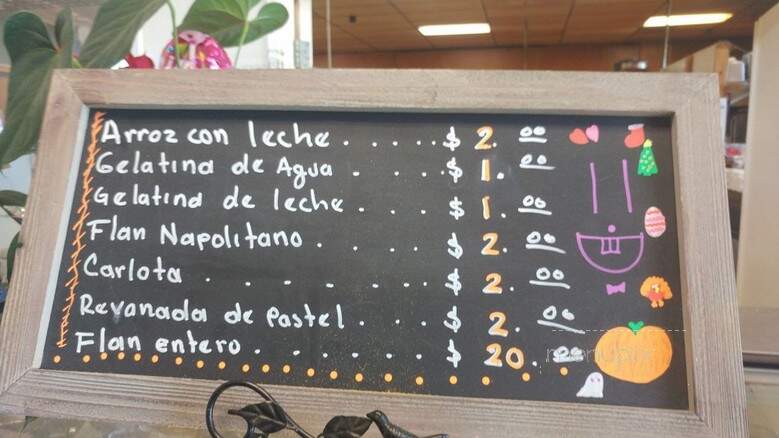 Arroz con leche . . . . . $ 2. 00
Gelatina de Agua . . . . . $ 1. 00
Gelatina de leche . . . . $ 1. 00
Flan Napolitano . . . . . $ 2. 00
Carlota . . . . . . . $ 2. 00
Revanada de Pastel . . . . $ 2. 00
Flan entero . . . . . . $ 20. 00
menupix